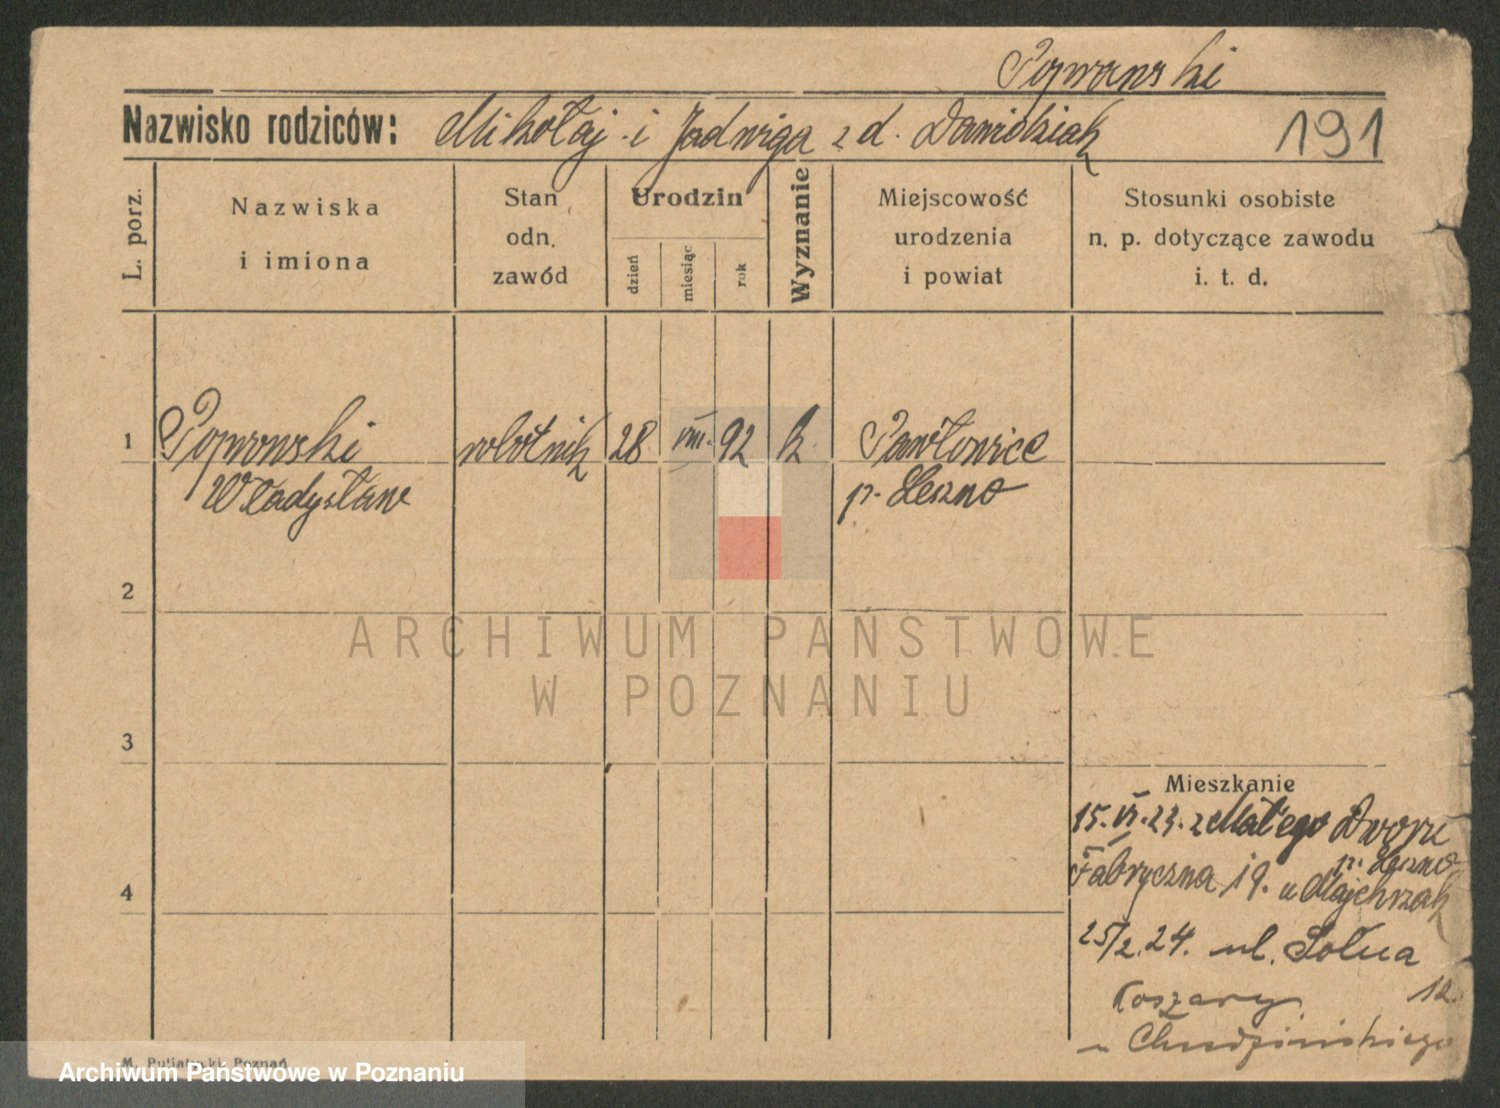 Popwonski
Nazwisko rodziców: Mikołaj i Jadwiga z d. Dawidziak
191
L. porz.
Nazwiska
i imiona
Stan
odn.
zawód
Urodzin
dzień
miesiąc
rok
Wyznanie
Miejscowość
urodzenia
i powiat
Stosunki osobiste
n. p. dotyczące zawodu
i. t. d.
1
robotnik
28
VIII.
92
k.
Pawłowice
Władysław
p. Leszno
2
ARCHIWUM PAŃSTWOWE
W POZNANIU
3
Mieszkanie
15. VI. 23. z Małego Dworu
p. Leszno
Fabryczna 19. u Majchrzak
4
25/2. 24. ul. Solna
Koszary 12.
u Chudzińskiego
M. Putiatycki, Poznań
Archiwum Państwowe w Poznaniu